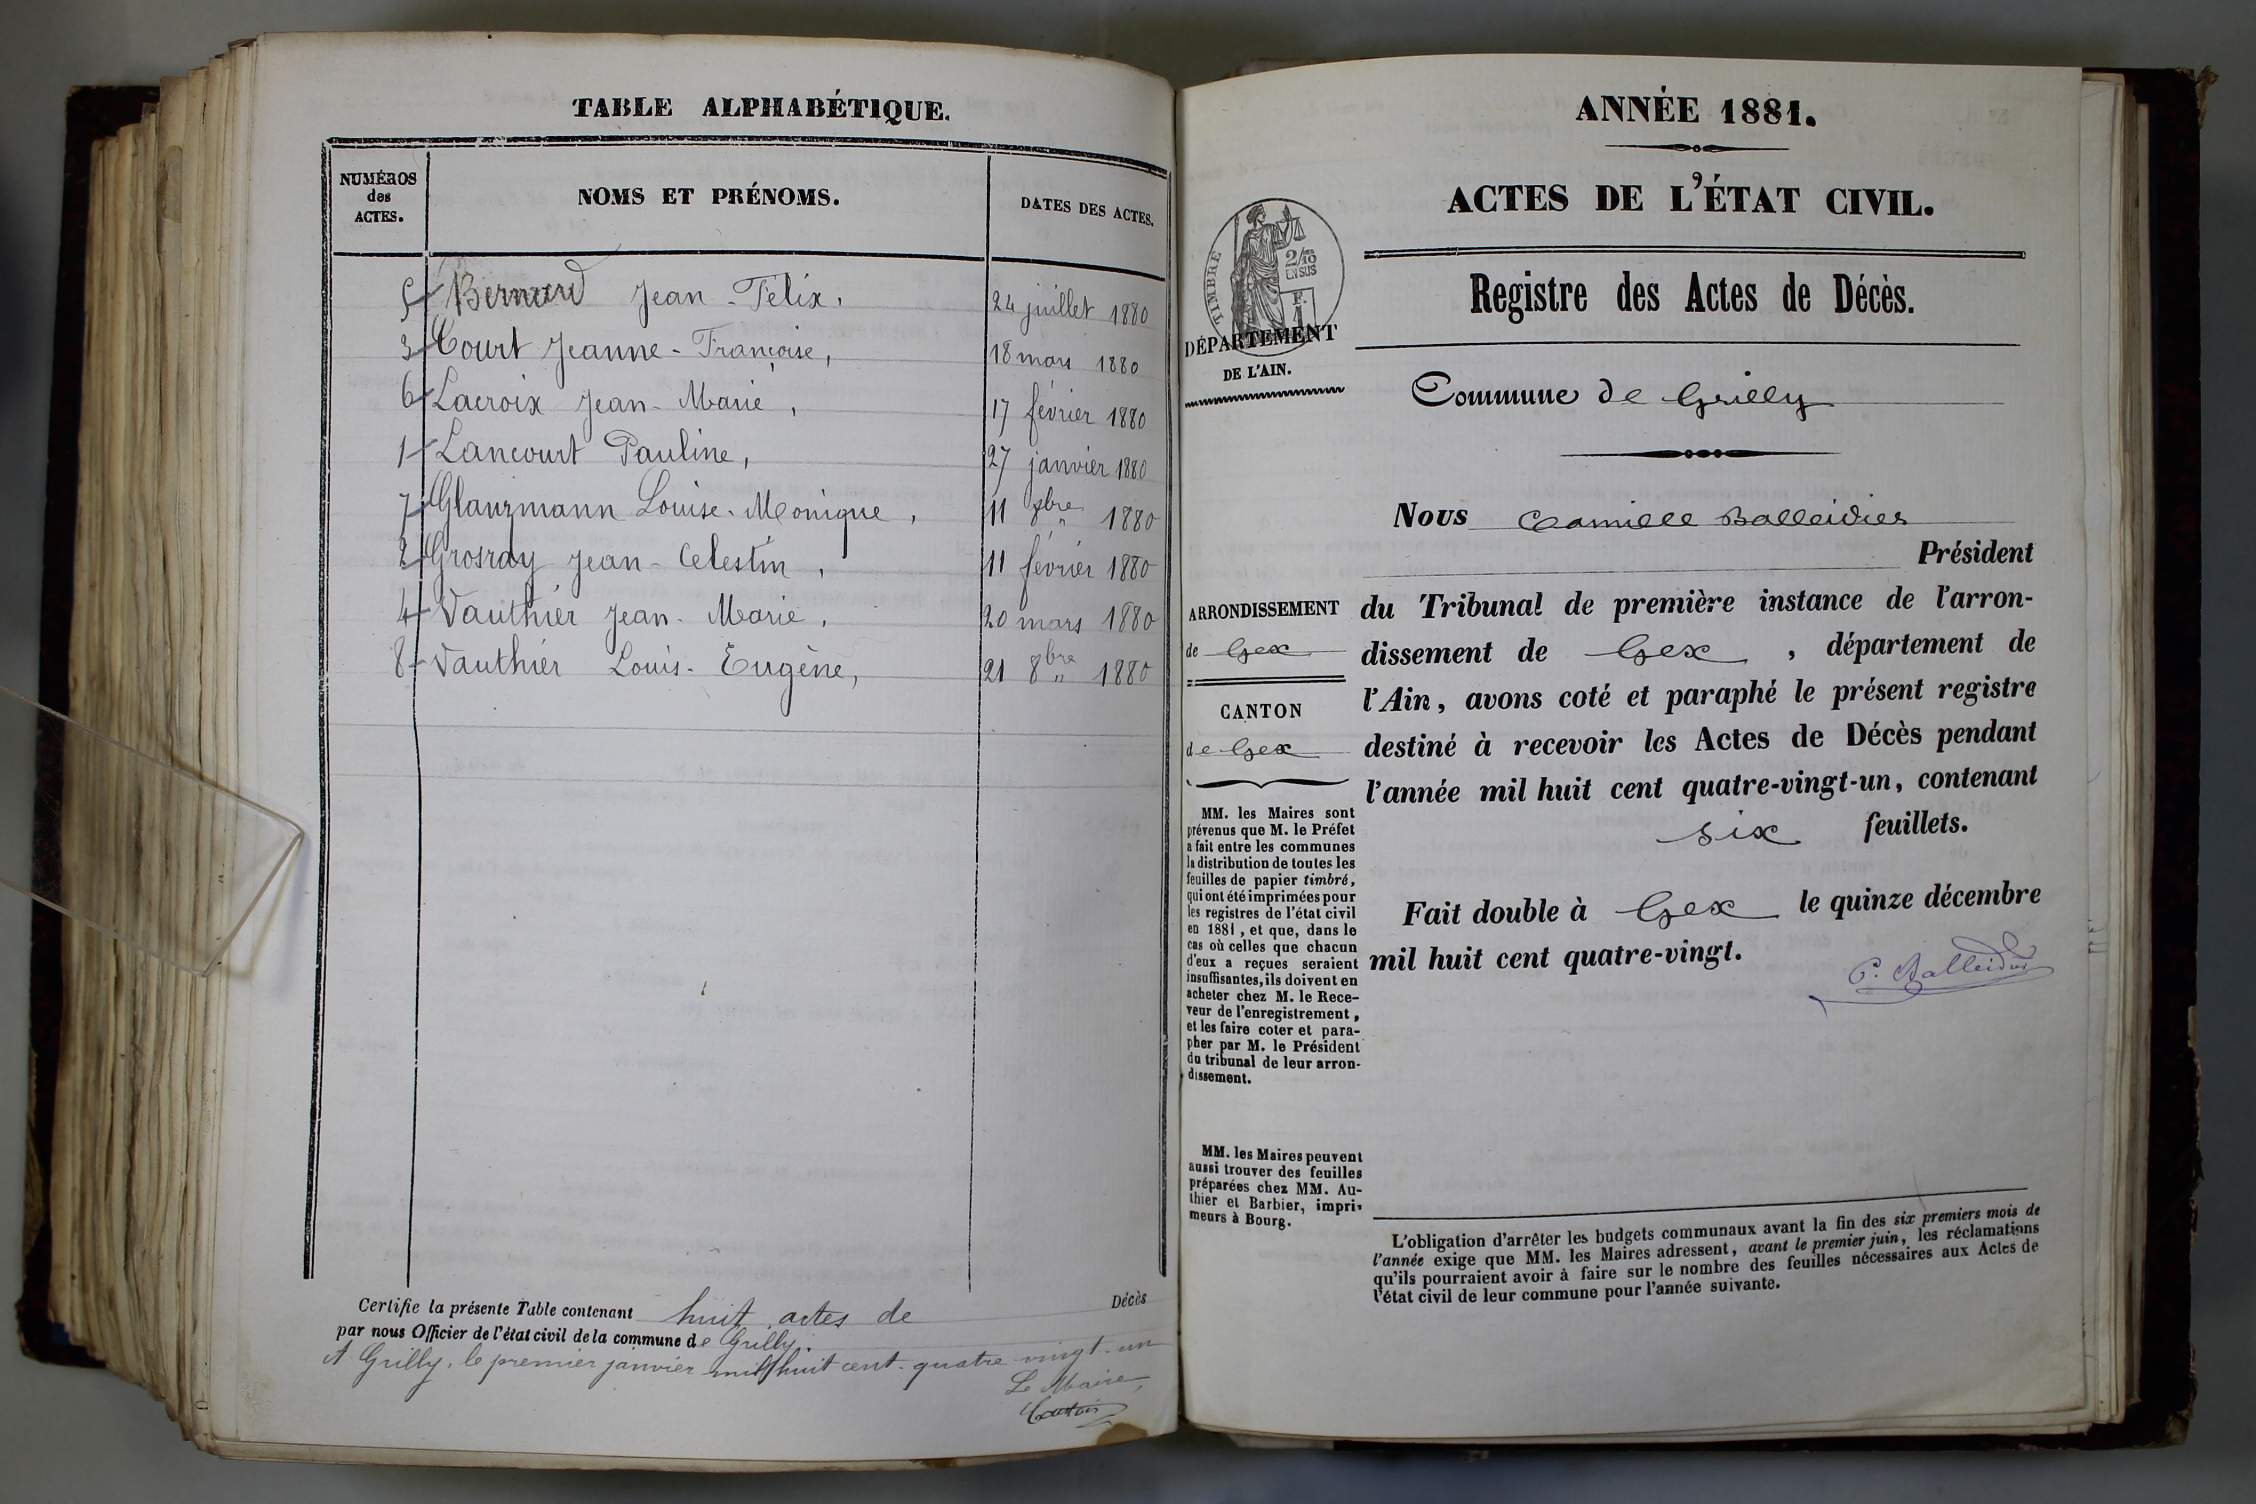 TABLE ALPHABÉTIQUE.
NUMÉROS
des
ACTES.
NOMS ET PRÉNOMS.
DATES DES ACTES.
5 Bernard Jean-Félix, 24 juillet 1880
3 Court Jeanne-Françoise, 18 mars 1880
6 Lacroix Jean-Marie, 17 février 1880
1 Lancourt Pauline, 27 janvier 1880
7 Glanzmann Louise-Monique, 11 8bre 1880
2 Grosray Jean-Celestin, 11 février 1880
4 Vauthier Jean-Marie, 20 mars 1880
8 Vauthier Louis-Eugène, 21 8bre 1880
Certifie la présente Table contenant huit actes de Décès
par nous Officier de l'état civil de la commune de Grilly.
A Grilly, le premier janvier mil huit cent quatre vingt-un
Le Maire,
ANNÉE 1881.
ACTES DE L'ÉTAT CIVIL.
TIMBRE
2/10
EN SUS
F.
1
DÉPARTEMENT
DE L'AIN.
Registre des Actes de Décès.
Commune de Grilly
Nous Camille Balleidier
Président
du Tribunal de première instance de l'arron-
dissement de Gex, département de
l'Ain, avons coté et paraphé le présent registre
destiné à recevoir les Actes de Décès pendant
l'année mil huit cent quatre-vingt-un, contenant
six feuillets.
Fait double à Gex le quinze décembre
mil huit cent quatre-vingt.
C. Balleidier
ARRONDISSEMENT
de Gex
CANTON
de Gex
MM. les Maires sont
prévenus que M. le Préfet
a fait entre les communes
la distribution de toutes les
feuilles de papier timbré,
qui ont été imprimées pour
les registres de l'état civil
en 1881, et que, dans le
cas où celles que chacun
d'eux a reçues seraient
insuffisantes, ils doivent en
acheter chez M. le Rece-
veur de l'enregistrement,
et les faire coter et para-
pher par M. le Président
du tribunal de leur arron-
dissement.
MM. les Maires peuvent
aussi trouver des feuilles
préparées chez MM. Au-
thier et Barbier, impri-
meurs à Bourg.
L'obligation d'arrêter les budgets communaux avant la fin des six premiers mois de
l'année exige que MM. les Maires adressent, avant le premier juin, les réclamations
qu'ils pourraient avoir à faire sur le nombre des feuilles nécessaires aux Actes de
l'état civil de leur commune pour l'année suivante.